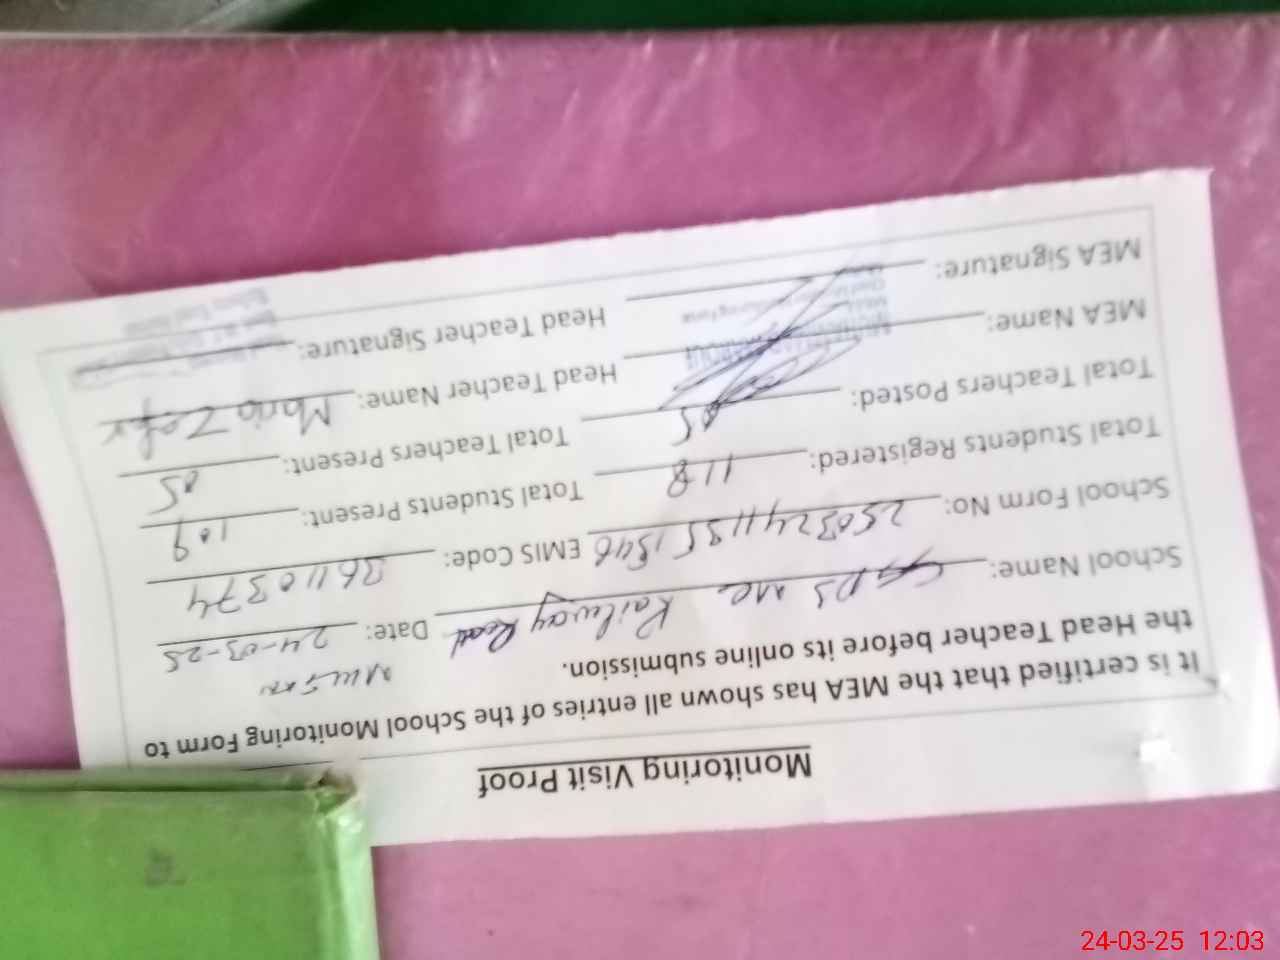 Monitoring Visit Proof
It is certified that the MEA has shown all entries of the School Monitoring Form to
the Head Teacher before its online submission.
MULTAN
School Name: GGPS MC Railway Road Date: 24-03-25
School Form No: EMIS Code: 36110374
Total Students Registered: 118 Total Students Present: 109
Total Teachers Posted: 05 Total Teachers Present: 05
MEA Name: Head Teacher Name: Maria Zafar
MEA Signature: Head Teacher Signature:
24-03-25 12:03